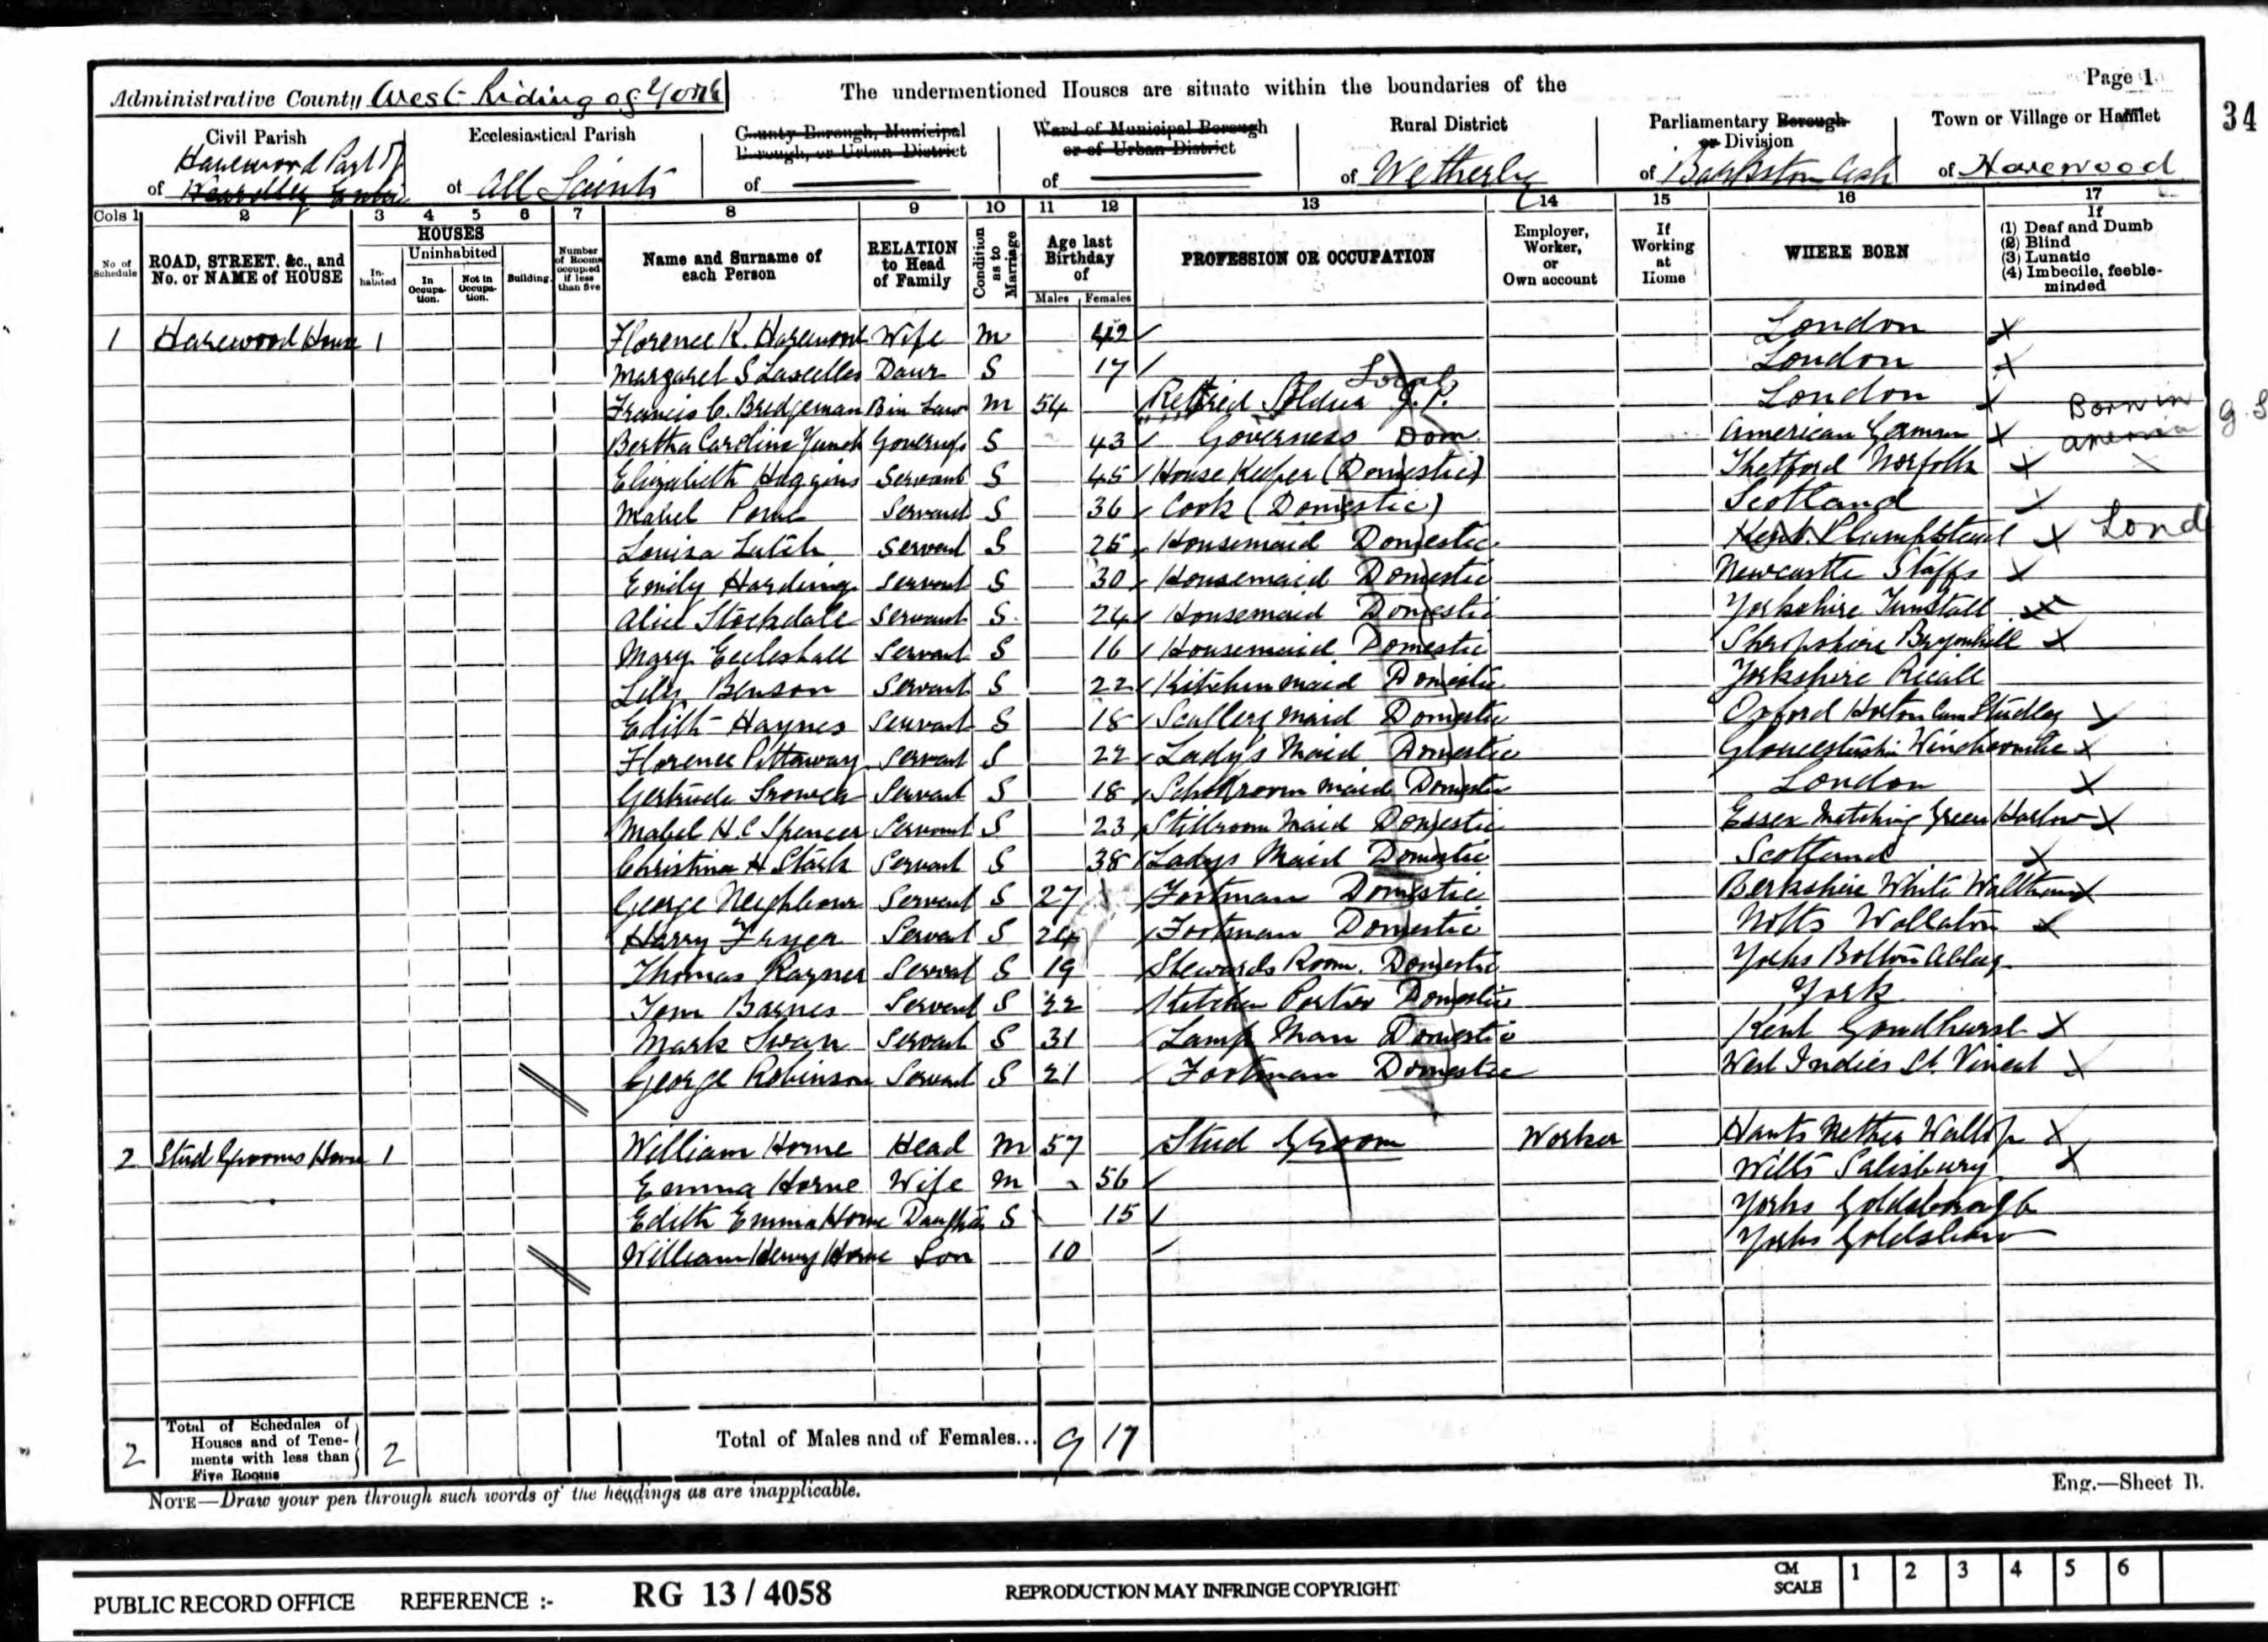 Page 1
34
Administrative County West Riding of York
The undermentioned Houses are situate within the boundaries of the
Civil Parish
Harewood Part of
of
Ecclesiastical Parish
of All Saints
County Borough, Municipal Borough, or Urban District
of
Ward of Municipal Borough or of Urban District
of
Rural District
of Wetherby
Parliamentary Borough or Division
of Barkston Ash
Town or Village or Hamlet
of Harewood
Cols 1 2 3 4 5 6 7 8 9 10 11 12 13 14 15 16 17
No of Schedule
ROAD, STREET, &c., and No. or NAME of HOUSE
HOUSES
Inhabited
Uninhabited
In Occupation.
Not in Occupation.
Building
Number of Rooms occupied if less than five
Name and Surname of each Person
RELATION to Head of Family
Condition as to Marriage
Age last Birthday of
Males
Females
PROFESSION OR OCCUPATION
Employer, Worker, or Own account
If Working at Home
WHERE BORN
If
(1) Deaf and Dumb
(2) Blind
(3) Lunatic
(4) Imbecile, feeble-minded
1 Harewood House 1 Florence K. Harewood Wife M 42 London
Margaret S Lascelles Daur S 17 London
Francis C. Bridgeman Bin Law M 54 Retired Soldier J.P. Local London
Bertha Caroline Governess S 43 Governess Dom American German Born in America G.S
Elizabeth Huggins Servant S 45 House Keeper (Domestic) Thetford Norfolk
Mabel Servant S 36 Cook (Domestic) Scotland
Louisa Servant S 25 Housemaid Domestic Kent Plumpstead Lond
Emily Harding Servant S 30 Housemaid Domestic Newcastle Staffs
Alice Stockdale Servant S 24 Housemaid Domestic Yorkshire Tunstall
Mary Eccleshall Servant S 16 Housemaid Domestic Shropshire
Lily Benson Servant S 22 Kitchen maid Domestic Yorkshire Ricall
Edith Haynes Servant S 18 Scullery maid Domestic Oxford Horton Cum Studley
Florence Pittaway Servant S 22 Lady's Maid Domestic Gloucestershire Winchcombe
Gertrude Servant S 18 Schoolroom maid Domestic London
Mabel H. C Spencer Servant S 23 Stillroom Maid Domestic Essex Matching Green Harlow
Christina H Stark Servant S 38 Ladys Maid Domestic Scotland
George Neighbour Servant S 27 Footman Domestic Berkshire White Waltham
Harry Fryer Servant S 24 Footman Domestic Notts Wollaton
Thomas Rayner Servant S 19 Stewards Room. Domestic Yorks Bolton Abbey
Tom Barnes Servant S 22 Kitchen Porter Domestic York
Mark Swan Servant S 31 Lamp Man Domestic Kent Goudhurst
George Robinson Servant S 21 Footman Domestic West Indies St. Vincent
2 Stud Grooms House 1 William Horne Head M 57 Stud Groom Worker Hants Nether Wallop
Emma Horne Wife M 56 Wilts Salisbury
Edith Emma Horne Daughter S 15 Yorks Goldsborough
William Henry Horne Son 10 Yorks
2 Total of Schedules of Houses and of Tenements with less than Five Rooms 2
Total of Males and of Females... 9 17
NOTE—Draw your pen through such words of the headings as are inapplicable.
Eng.—Sheet B.
PUBLIC RECORD OFFICE REFERENCE :- RG 13 / 4058 REPRODUCTION MAY INFRINGE COPYRIGHT CM SCALE 1 2 3 4 5 6